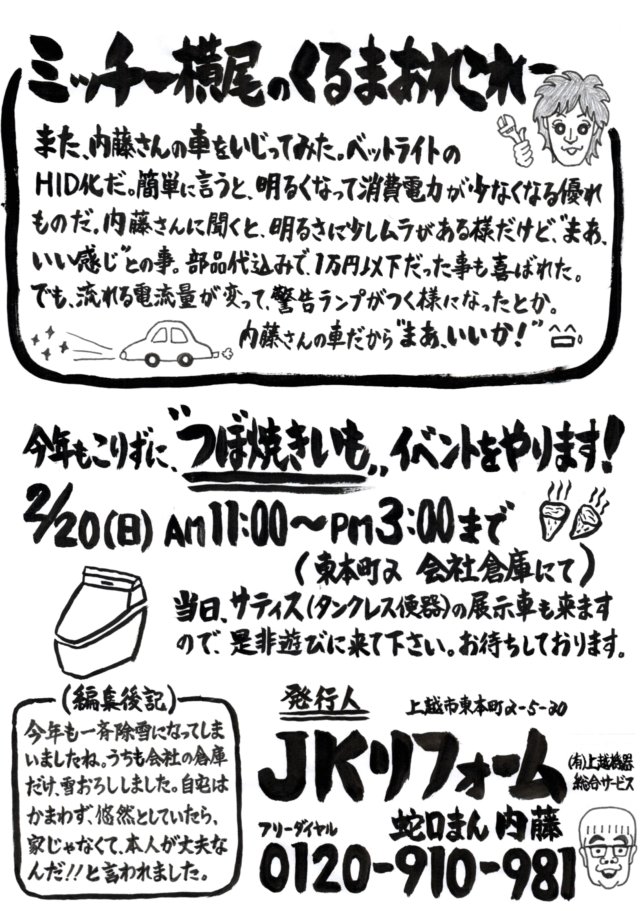 ミッチー横尾のくるまおれこれー
また、内藤さんの車をいじってみた。ベットライトの
HID化だ。簡単に言うと、明るくなって消費電力が少なくなる優れ
ものだ。内藤さんに聞くと、明るさに少しムラがある様だけど、"まあ、
いい感じ"との事。部品代込みで、1万円以下だった事も喜ばれた。
でも、流れる電流量が変って、警告ランプがつく様になったとか。
内藤さんの車だから"まあ、いいか!"
今年もこりずに、"つぼ焼きいも"イベントをやります!
2/20(日) AM11:00〜PM3:00まで
(東本町2 会社倉庫にて)
当日、サティス(タンクレス便器)の展示車も来ます
ので、是非遊びに来て下さい。お待ちしております。
(編集後記)
今年も一斉除雪になってしま
いましたね。うちも会社の倉庫
だけ、雪おろししました。自宅は
かまわず、悠然としていたら、
家じゃなくて、本人が丈夫な
んだ!!と言われました。
発行人
上越市東本町2-5-20
JKリフォーム
(有)上越機器
総合サービス
蛇口まん 内藤
フリーダイヤル
0120-910-981